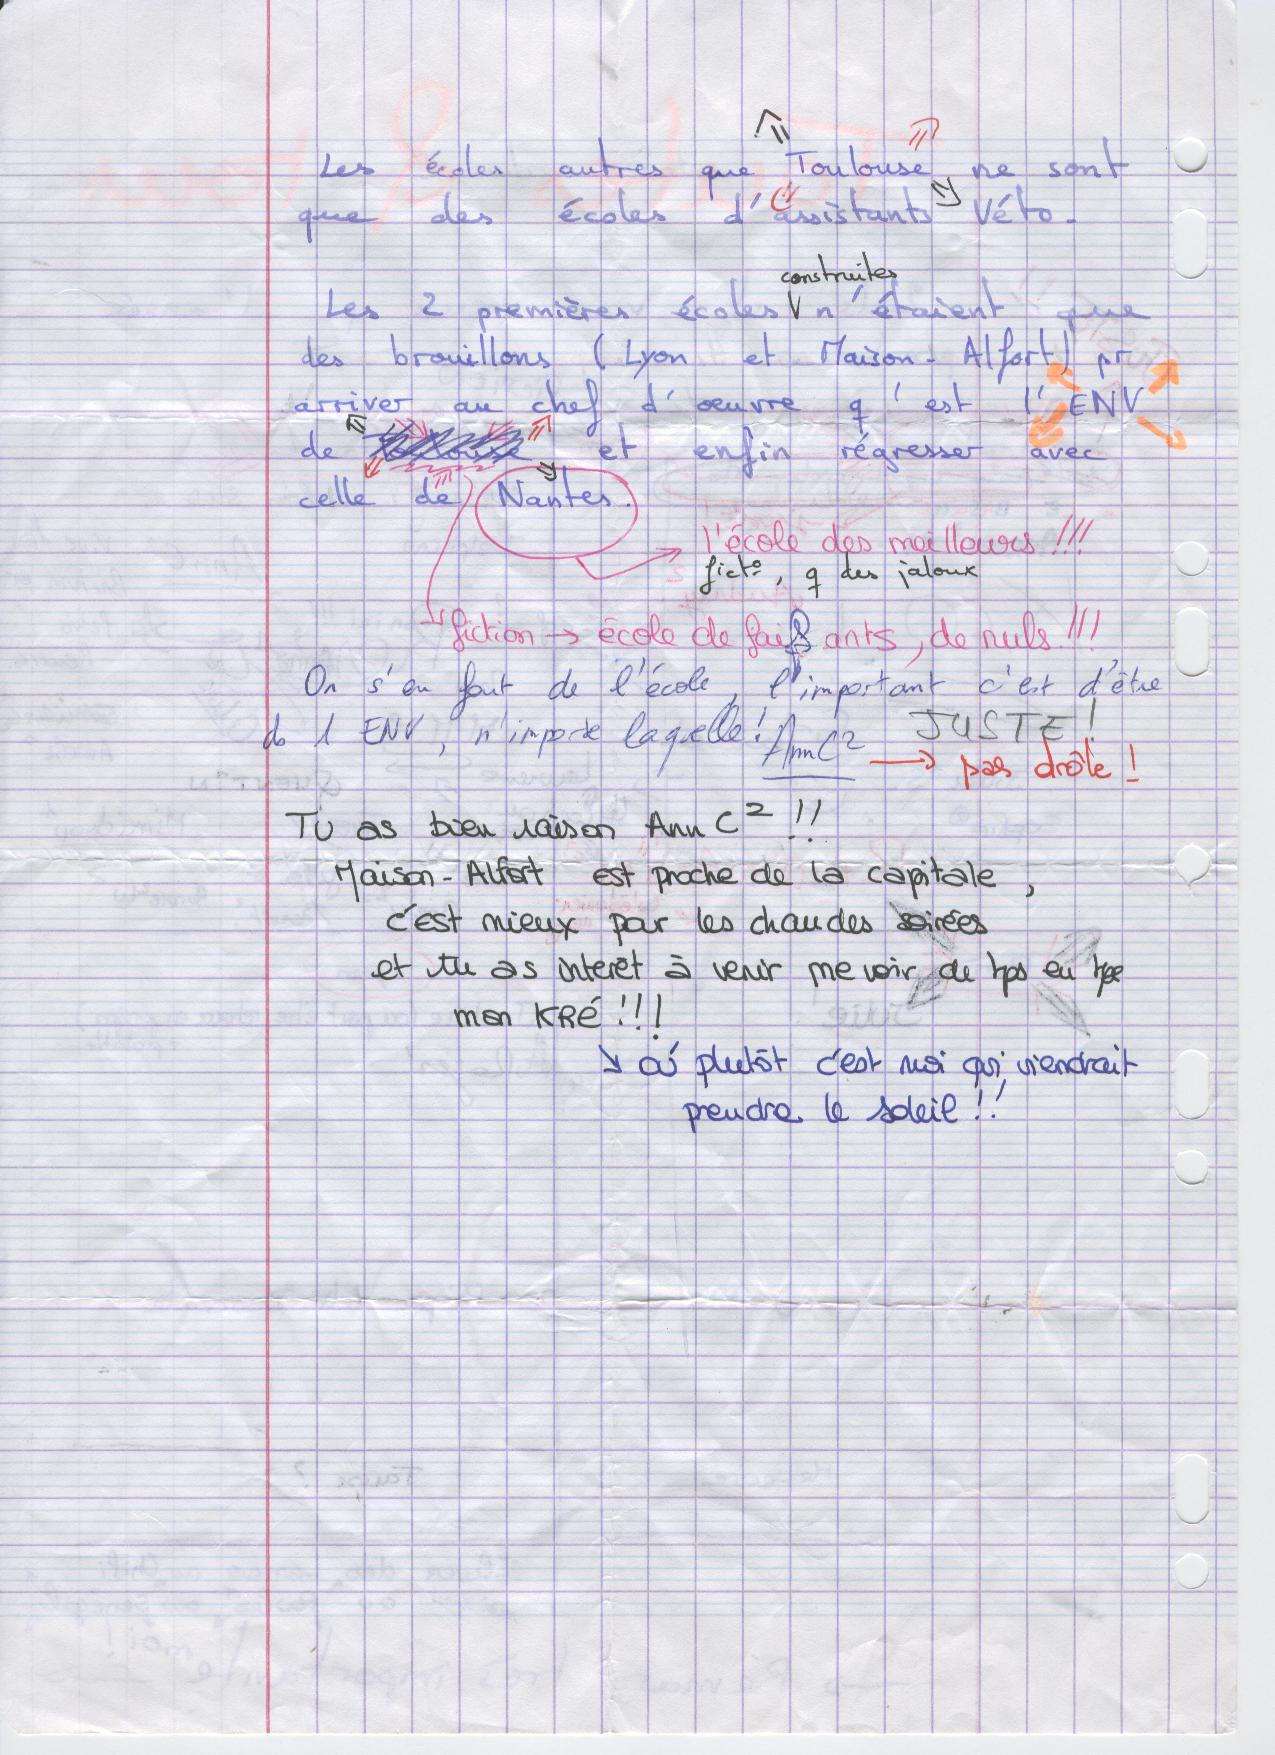 Les écoles autres que Toulouse ne sont
que des écoles d'assistants Véto.
construites
Les 2 premières écoles n'étaient que
des brouillons (Lyon et Maison-Alfort) pr
arriver au chef d'oeuvre q'est l'ENV
de Toulouse et enfin régresser avec
celle de Nantes.
l'école des meilleurs !!!
fict°, q des jaloux
fiction → école de fais ants, de nuls !!!
On s'en fout de l'école, l'important c'est d'être
ds 1 ENV, n'importe laquelle ! AnnC²
JUSTE !
→ pas drôle !
Tu as bien raison AnnC² !!
Maison-Alfort est proche de la capitale,
c'est mieux par les chaudes soirées
et tu as interêt à venir me voir de tps en tps
mon KRÉ !!!
où plutôt c'est moi qui viendrait
prendre le soleil !!